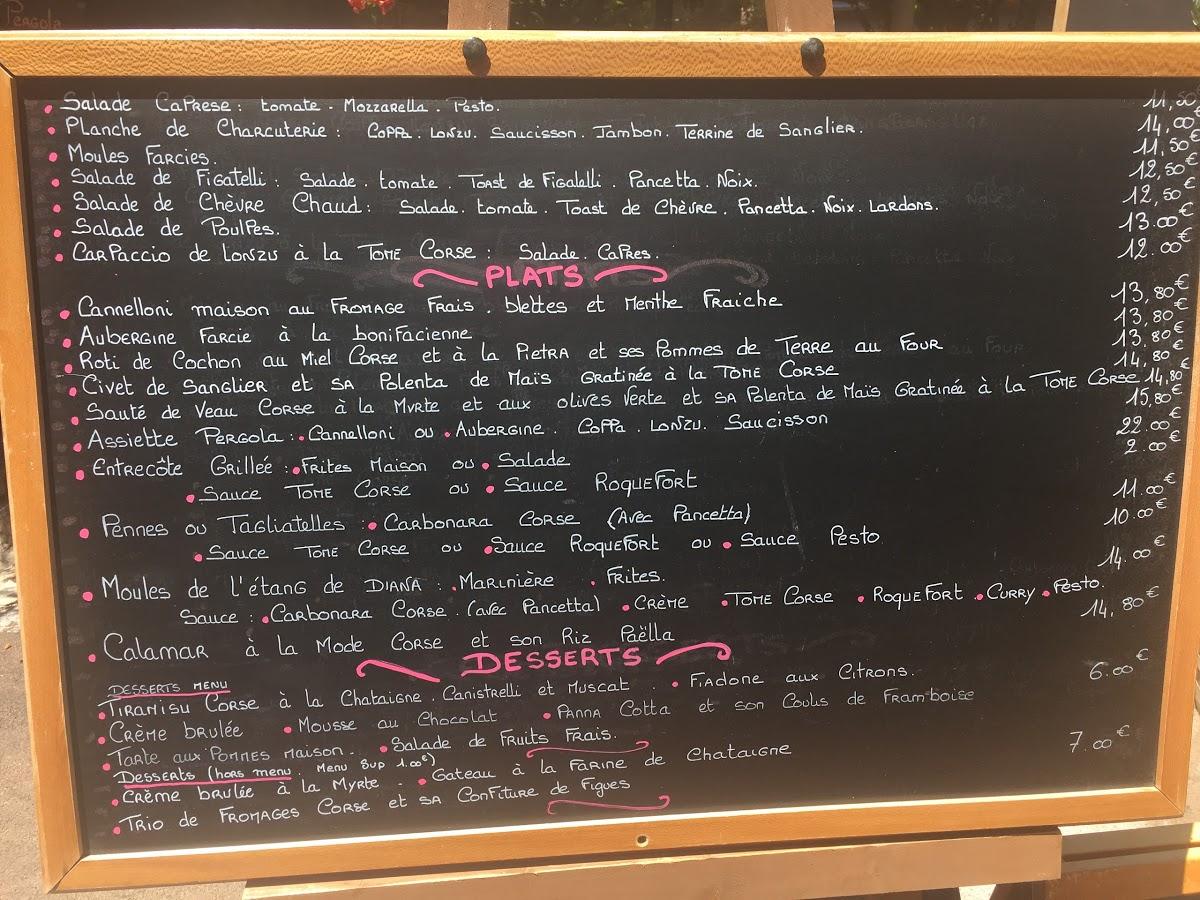 Pergola
Salade Caprese : tomate . Mozzarella . Pesto. 11,50
Planche de Charcuterie : Coppa . Lonzu . Saucisson . Jambon . Terrine de Sanglier. 14,00€
Moules Farcies. 11,50€
Salade de Figatelli : Salade . tomate . Toast de Figatelli . Pancetta . Noix. 12,50€
Salade de Chèvre Chaud : Salade . tomate . Toast de Chèvre . Pancetta . Noix . Lardons. 12,50€
Salade de Poulpes. 13.00€
Carpaccio de Lonzu à la Tome Corse : Salade . Capres. 12.00€
PLATS
Cannelloni maison au Fromage Frais . blettes et Menthe Fraiche 13,80€
Aubergine Farcie à la bonifacienne 13,80€
Roti de Cochon au Miel Corse et à la Pietra et ses Pommes de Terre au Four 13,80€
Civet de Sanglier et sa Polenta de Maïs Gratinée à la Tome Corse 14,80€
Sauté de Veau Corse à la Myrte et aux olives verte et sa Polenta de Maïs Gratinée à la Tome Corse 14,80€
Assiette Pergola : . Cannelloni ou . Aubergine . Coppa . Lonzu . Saucisson 15,80€
Entrecôte Grillée : . Frites Maison ou . Salade 22.00€
. Sauce Tome Corse ou . Sauce Roquefort 2.00€
Pennes ou Tagliatelles : . Carbonara Corse (Avec Pancetta) 11.00€
. Sauce Tome Corse ou . Sauce Roquefort ou . Sauce Pesto 10.00€
Moules de l'étang de Diana : . Marinière . Frites. 14.00€
Sauce : . Carbonara Corse . (avec Pancetta) . Crème . Tome Corse . Roquefort . Curry . Pesto.
Calamar à la Mode Corse et son Riz Paëlla 14,80€
DESSERTS
Desserts Menu 6.00€
Tiramisu Corse à la Chataigne . Canistrelli et Muscat . . Fiadone aux Citrons.
Crème brulée . Mousse au Chocolat . Panna Cotta et son Coulis de Framboise
Tarte aux Pommes Maison . . Salade de Fruits Frais.
Desserts (hors menu . Menu Sup 1.00€) 7.00€
Crème brulée à la Myrte . . Gateau à la Farine de Chataigne
Trio de Fromages Corse et sa Confiture de Figues